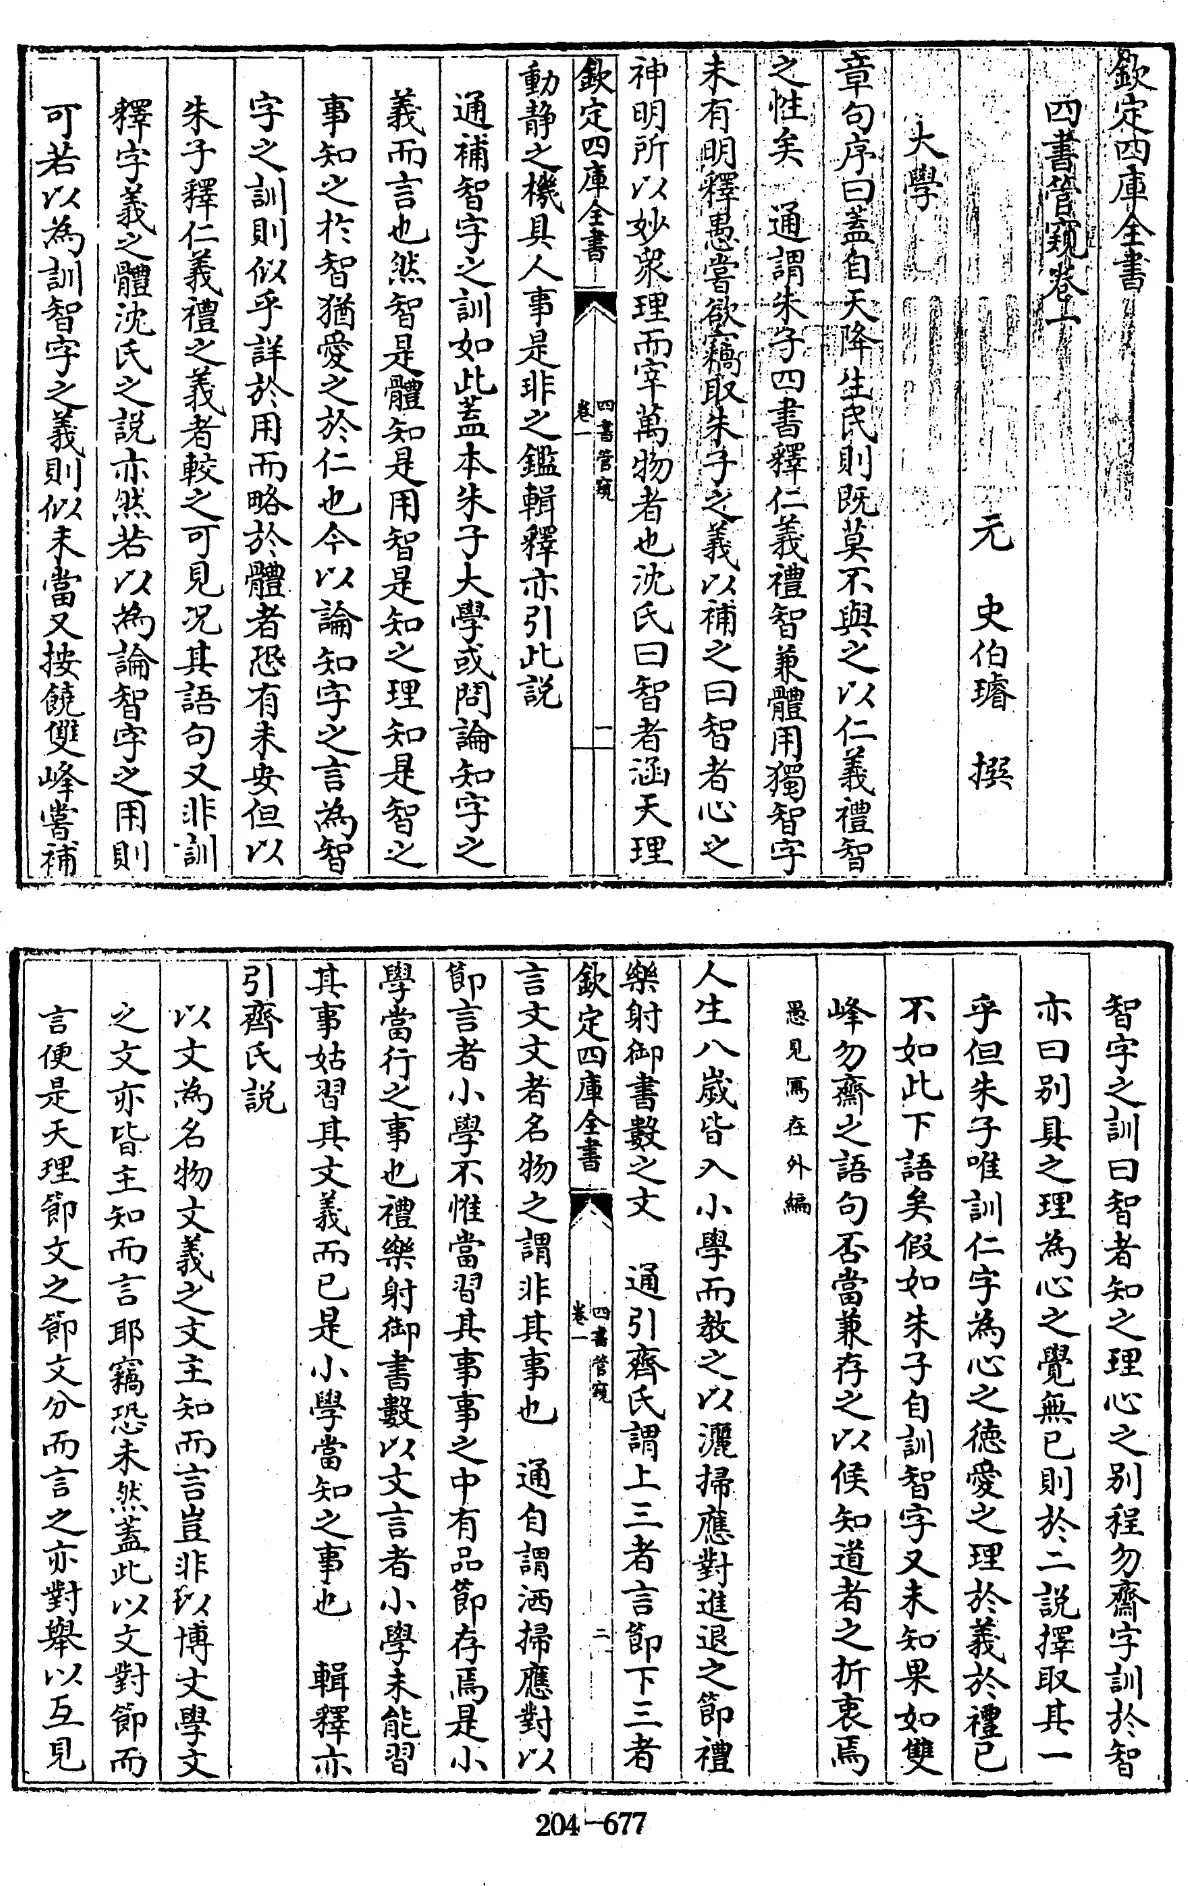 欽定四庫全書
四書管窺卷一
元 史伯璿 撰
大學
章句序曰蓋自天降生民則既莫不與之以仁義禮智
之性矣 通謂朱子四書釋仁義禮智兼體用獨智字
未有明釋愚嘗欲竊取朱子之義以補之曰智者心之
神明所以妙衆理而宰萬物者也沈氏曰智者涵天理
欽定四庫全書
四書管窺
卷一
一
動静之機具人事是非之鑑輯釋亦引此説
通補智字之訓如此蓋本朱子大學或問論知字之
義而言也然智是體知是用智是知之理知是智之
事知之於智猶愛之於仁也今以論知字之言為智
字之訓則似乎詳於用而略於體者恐有未安但以
朱子釋仁義禮之義者較之可見况其語句又非訓
釋字義之體沈氏之説亦然若以為論智字之用則
可若以為訓智字之義則似未當又按饒雙峰嘗補
智字之訓曰智者知之理心之别程勿齋字訓於智
亦曰别具之理為心之覺無已則於二説擇取其一
乎但朱子唯訓仁字為心之德愛之理於義於禮已
不如此下語矣假如朱子自訓智字又未知果如雙
峰勿齋之語句否當兼存之以俟知道者之折衷焉
愚見寫在外編
人生八歲皆入小學而教之以灑掃應對進退之節禮
樂射御書數之文 通引齊氏謂上三者言節下三者
欽定四庫全書
四書管窺
卷一
二
言文文者名物之謂非其事也 通自謂洒掃應對以
節言者小學不惟當習其事事之中有品節存焉是小
學當行之事也禮樂射御書數以文言者小學未能習
其事姑習其文義而已是小學當知之事也 輯釋亦
引齊氏説
以文為名物文義之文主知而言豈非以博文學文
之文亦皆主知而言耶竊恐未然蓋此以文對節而
言便是天理節文之節文分而言之亦對舉以互見
204-677